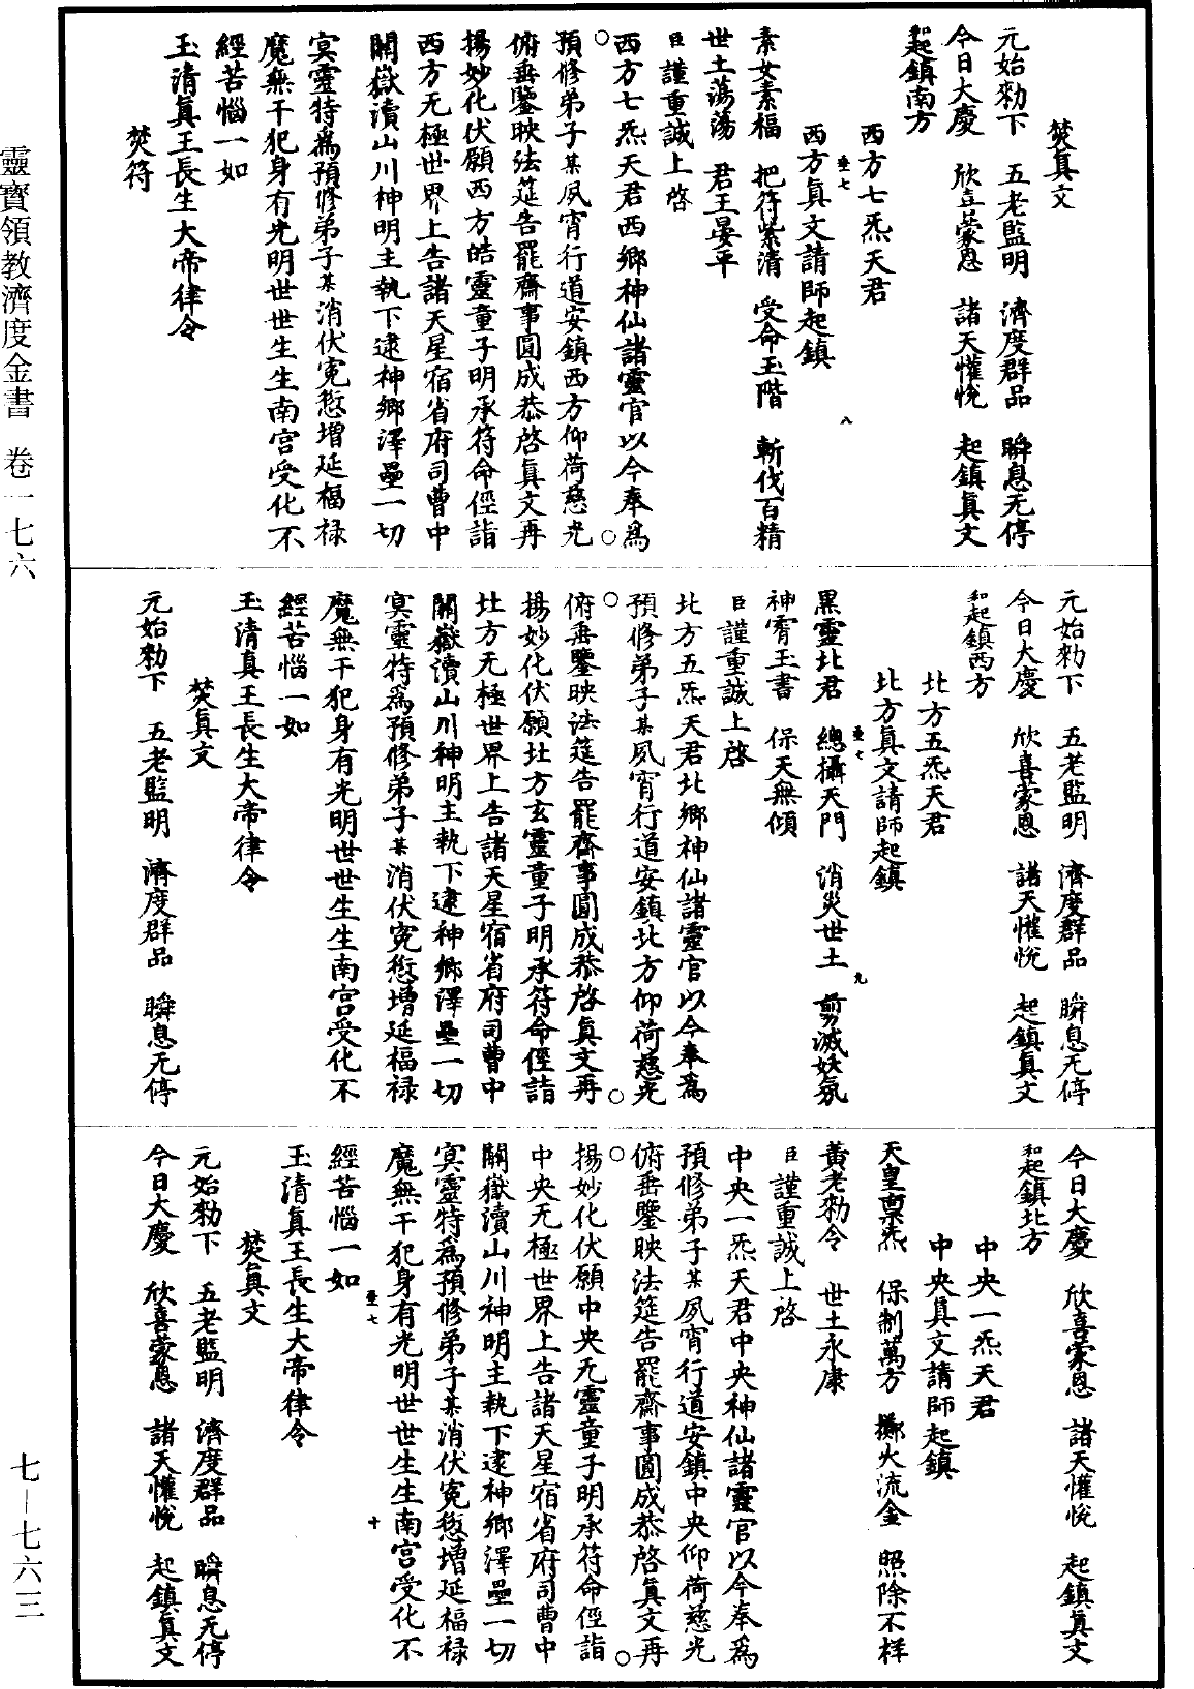 焚真文
元始勑下　五老監明　濟度群品　瞬息无停
今日大慶　欣喜蒙恩　諸天懽悅　起鎮真文
和起鎮南方
西方七炁天君
西方真文請師起鎮
素女素福　把符紫清　受命玉階　斬伐百精
世土蕩蕩　君王晏平
臣謹重誠上啓
西方七炁天君西鄉神仙諸靈官以今奉爲
預修弟子某夙宵行道安鎮西方仰荷慈光
俯垂鑒映法筵告罷齋事圓成恭啓真文再
揚妙化伏願西方皓靈童子明承符命俓詣
西方无極世界上告諸天星宿省府司曹中
關嶽瀆山川神明主執下逮神鄉澤壘一切
冥靈特爲預修弟子某消伏寃愆增延福禄
魔無干犯身有光明世世生生南宮受化不
經苦惱一如
玉清真王長生大帝律令
焚符
元始勑下　五老監明　濟度群品　瞬息无停
今日大慶　欣喜蒙恩　諸天懽悅　起鎮真文
和起鎮西方
北方五炁天君
北方真文請師起鎮
黑靈北君　總攝天門　消災世土　剪滅妖氛
神霄玉書　保天無傾
臣謹重誠上啓
北方五炁天君北鄉神仙諸靈官以今奉爲
預修弟子某夙宵行道安鎮北方仰荷慈光
俯垂鑒映法筵告罷齋事圓成恭啓真文再
揚妙化伏願北方玄靈童子明承符命俓詣
北方无極世界上告諸天星宿省府司曹中
關嶽瀆山川神明主執下逮神鄉澤壘一切
冥靈特爲預修弟子某消伏寃愆增延福禄
魔無干犯身有光明世世生生南宮受化不
經苦惱一如
玉清真王長生大帝律令
焚真文
元始勑下　五老監明　濟度群品　瞬息无停
今日大慶　欣喜蒙恩　諸天懽悅　起鎮真文
和起鎮北方
中央一炁天君
中央真文請師起鎮
天皇禀炁　保制萬方　擲火流金　照除不祥
黃老勑令　世土永康
臣謹重誠上啓
中央一炁天君中央神仙諸靈官以今奉爲
預修弟子某夙宵行道安鎮中央仰荷慈光
俯垂鑒映法筵告罷齋事圓成恭啓真文再
揚妙化伏願中央无靈童子明承符命俓詣
中央无極世界上告諸天星宿省府司曹中
關嶽瀆山川神明主執下逮神鄉澤壘一切
冥靈特爲預修弟子某消伏寃愆增延福禄
魔無干犯身有光明世世生生南宮受化不
經苦惱一如
玉清真王長生大帝律令
焚真文
元始勑下　五老監明　濟度群品　瞬息无停
今日大慶　欣喜蒙恩　諸天懽悅　起鎮真文
靈寶領教濟度金書　卷一七六
七－七六三